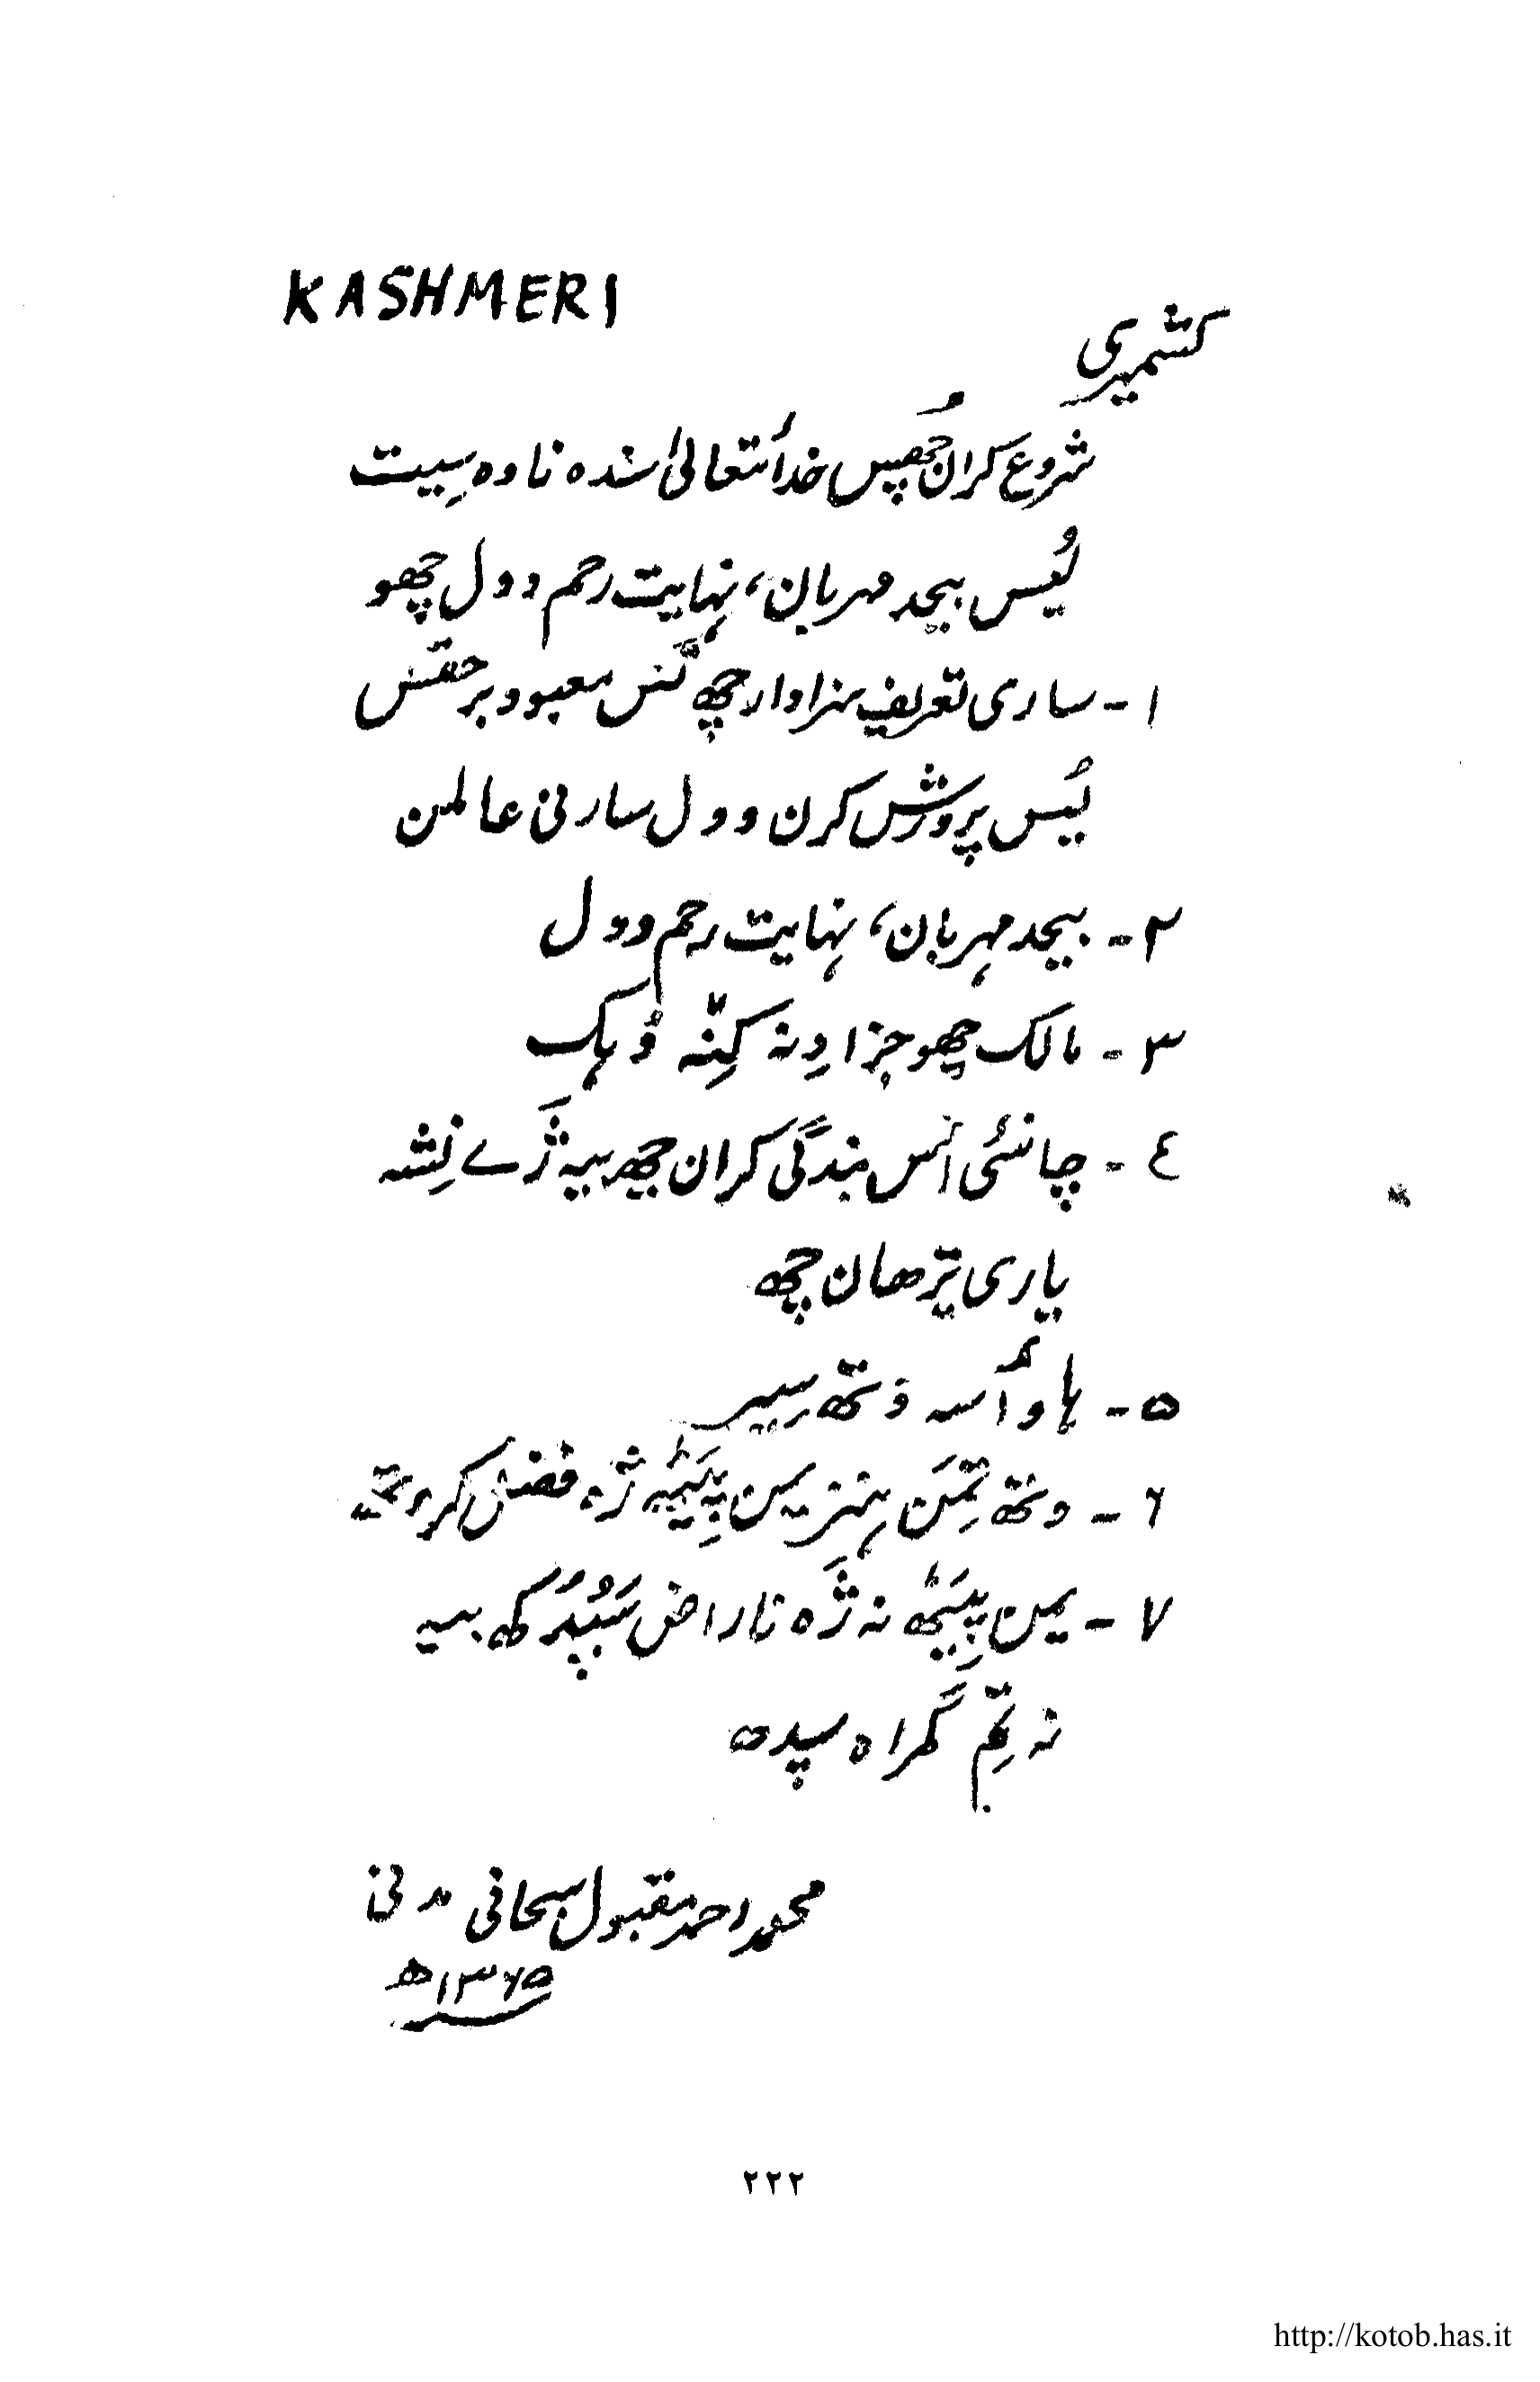 KASHMERI
کشمیری
شروع کران چھُس خدأتعالیٰ سٔندہ ناوہ سِیت
یُس بیحد مہربان، نہایت رحم وول چھو
١- ساری تعریف سزاوار چھ تَس معبود برحقس
یُس پرورش کرن وول سارنی عالمن
٢- بیحد مہربان، نہایت رحم وول
٣- مالک چھو جزا دِنہ کِنّہ دُہک
٤- چانئی أس بندگی کران چھ بیہ ژَے نِشہ
یاری ترھان چھ
٥- ہاو أسہ وَتھ سِیز
٦- وتھ تِمَن ہنز یمن پِیَٹھ ژہ فضل کروتھ
٧- یمن پِیَٹھ نہ ژَہ ناراض سَپُدُکھ بیہ
نہ تِم گمراہ سپدہ
محمد احمد مقبول سبحانی مدنی
١٣٦٥ھ
٢٢٢
http://kotob.has.it